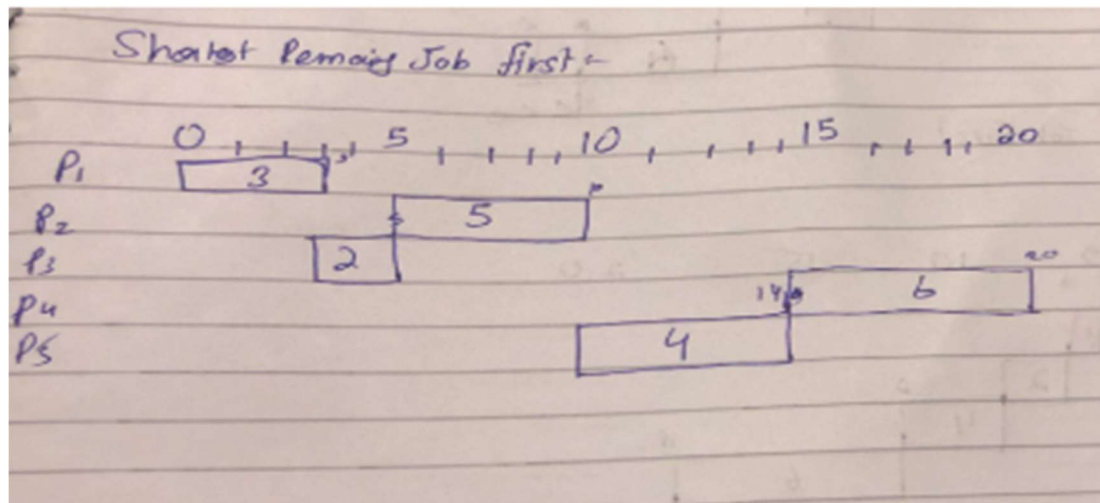 Shotest Remaig Job first :-
0 5 10 15 20
P1 3 3
P2 5 5 10
P3 2
P4 14 6 20
P5 4